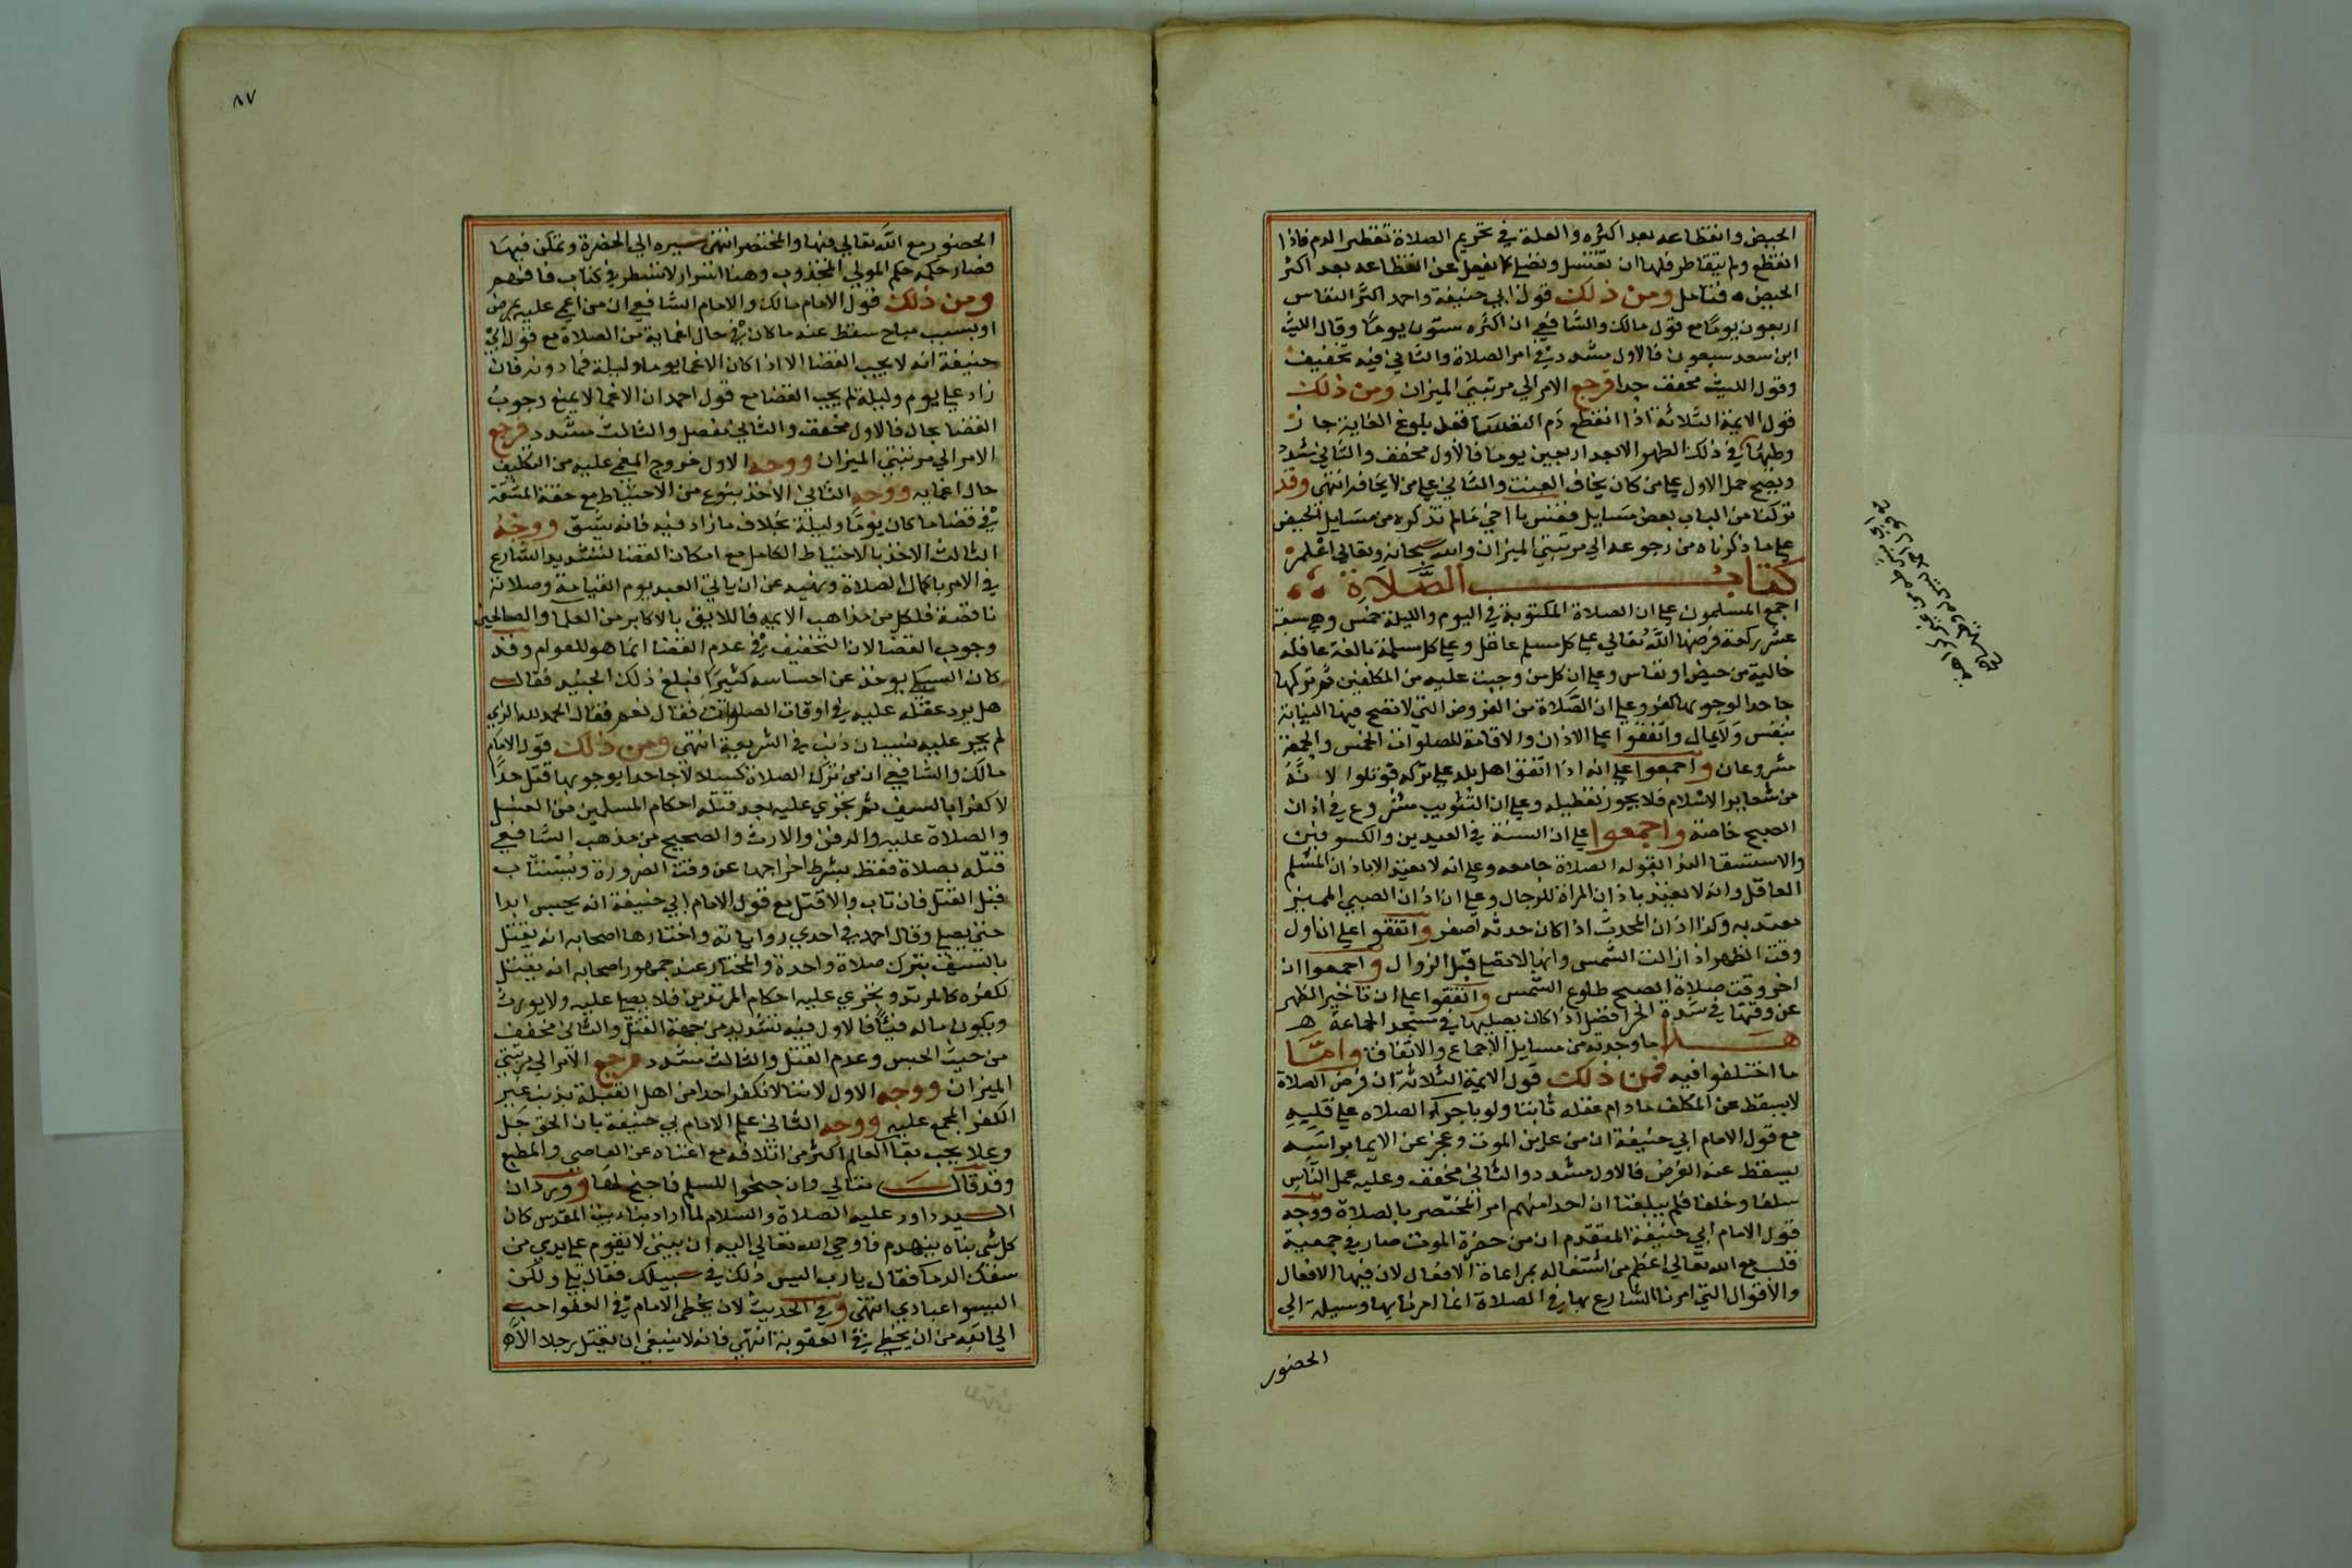 الحيض وانقطاعه بعد اكثره والعلة في تحريم الصلاة تقطير الدم فاذا
انقطع ولم يتقاطر فلها ان تغتسل وتصلي كما يفعل عن انقطاعه بعد اكثر
الحيض فتامل ومن ذلك قول ابي حنيفة واحمد اكثر النفاس
اربعون يوما مع قول مالك والشافعي ان اكثره ستون يوما وقال الليث
ابن سعد سبعون فالاول مشدد في امر الصلاة والثاني فيه تخفيف
وقول الليث مخفف جدا فرجع الامر الي مرتبتي الميزان ومن ذلك
قول الايمة الثلاثة اذا انقطع دم النفساء قبل بلوغ الغاية جاز
وطيها في ذلك الطهر الا بعد اربعين يوما فالاول مخفف والثاني مشدد
ويصح حمل الاول علي من كان يخاف العنت والثاني علي من لا يخافه انتهي وقد
تركنا من الباب بعض مسايل فقس يا اخي مالم نذكره من مسايل الحيض
علي ما ذكرناه من رجوعه الي مرتبتي الميزان والله سبحانه وتعالي اعلم
كتاب الصلاة
اجمع المسلمون علي ان الصلاة المكتوبة في اليوم والليلة خمس وهي سبعة
عشر ركعة فرضها الله تعالي علي كل مسلم عاقل وعلي كل مسلمة بالغة عاقلة
خالية من حيض او نفاس وعلي ان كل من وجبت عليه من المكلفين ثم تركها
جاحدا لوجوبها كفر وعلي ان الصلاة من الفروض التي لا تصح فيها النيابة
بنفس ولا بمال واتفقوا علي الاذان والاقامة للصلوات الخمس والجمعة
مشروعان واجمعوا علي انه اذا اتفق اهل بلد علي تركه قوتلوا لانه
من شعاير الاسلام فلا يجوز تعطيله وعلي ان التثويب مشروع في اذان
الصبح خاصة واجمعوا علي ان السنة في العيدين والكسوفين
والاستسقا الندا بقوله الصلاة جامعه وعلي انه لا يعتد الا باذان المسلم
العاقل وانه لا يعتد باذان المراة للرجال وعلي ان اذان الصبي المميز
معتد به وكذا اذان المحدث اذا كان حدثه اصغر واتفقوا علي ان اول
وقت الظهر اذا زالت الشمس وانها لا تصلي قبل الزوال واجمعوا ان
اخر وقت صلاة الصبح طلوع الشمس واتفقوا علي ان تاخير الظهر
عن وقتها في شدة الحر افضل اذا كان يصليها في مسجد الجماعة
هذا ما وجدته من مسايل الاجماع والاتفاق واما
ما اختلفوا فيه فمن ذلك قول الايمة الثلاثة ان فرض الصلاة
لا يسقط عن المكلف مادام عقله ثابتا ولو باجراء الصلاه علي قلبه
مع قول الامام ابي حنيفة ان من عاين الموت وعجز عن الايما براسه
يسقط عنه الفرض فالاول مشدد والثاني مخفف وعليه عمل الناس
سلفا وخلفا فلم يبلغنا ان احدا منهم امر المحتضر بالصلاة ووجه
قول الامام ابي حنيفة المتقدم ان من حضره الموت صار في جمعية
قلبه مع الله تعالي اعظم من اشتغاله بمراعاة الافعال لان فيها الافعال
والاقوال التي امرنا الشارع بها في الصلاة انما امرنا بها وسيلة الي
الحضور
٨٧
الحضور مع الله تعالي فيها والمحتضر انتهي سيره الي الحضرة وتمكن فيها
فصار حكمه حكم المولي المجذوب وهنا اسرار لا تسطر في كتاب فافهم
ومن ذلك قول الامام مالك والامام الشافعي ان من اغمي عليه بمرض
او بسبب مباح سقط عنه ما كان في حال اغمايه من الصلاة مع قول ابي
حنيفة انه لا يجب القضا الا اذا كان الاغما يوما وليلة فما دونه فان
زاد علي يوم وليلة لم يجب القضا مع قول احمد ان الاغما لا يمنع وجوب
القضا بحال فالاول مخفف والثاني مفصل والثالث مشدد فرجع
الامر الي مرتبتي الميزان ووجه الاول خروج المغمي عليه من التكليف
حال اغمايه ووجه الثاني الاخذ بنوع من الاحتياط مع خفة المشقة
في قضا ما كان يوما وليلة بخلاف مازاد فيه فانه يشق ووجه
الثالث الاخذ بالاحتياط الكامل مع امكان القضا لتشديد الشارع
في الامر باكمال الصلاة ونهيه عن ان ياتي العبد يوم القيامة وصلاته
ناقصة فلكل من مذاهب الايمه فاللايق بالاكابر من العلما والصالحين
وجوب القضا لان التخفيف في عدم القضا انما هو للعوام وقد
كان الشبلي يوخذ عن احساسه كثيرا فبلغ ذلك الجنيد فقال
هل يرد عقله عليه في اوقات الصلوات فقال نعم فقال الحمد لله الذي
لم يجر عليه لسان ذنب في الشريعة انتهي ومن ذلك قول الامام
مالك والشافعي ان من ترك الصلاة كسلا لا جاحدا بوجوبها قتل حدا
لا كفرا بالسيف ثم تجري عليه بعد قتله احكام المسلمين من الغسل
والصلاة عليه والدفن والارث والصحيح من مذهب الشافعي
قتله بصلاة فقط بشرط اخراجها عن وقت الضرورة ويستتاب
قبل القتل فان تاب والا قتل مع قول الامام ابي حنيفة انه يحبس ابدا
حتي يصلي وقال احمد في احدي رواياته واختارها اصحابه انه يقتل
بالسيف بترك صلاة واحدة والمختار عند جمهور اصحابه انه يقتل
لكفره كالمرتد وتجري عليه احكام المرتدين فلا يصلي عليه ولا يورث
ويكون ماله فيئا فالاول فيه تشديد من جهة القتل والثاني مخفف
من حيث الحبس وعدم القتل والثالث مشدد فرجع الامر الي مرتبتي
الميزان ووجه الاول لاننا لا نكفر احدا من اهل القبلة بذنب غير
الكفر المجمع عليه ووجه الثاني علم الامام ابي حنيفة بان الحق جل
وعلا يحب بقا العالم اكثر من اتلافه مع اغناه عن العاصي والمطيع
وقد قال تعالي وان جنحوا للسلم فاجنح لها وورد ان
السيد داود عليه الصلاة والسلام لما اراد بناء بيت المقدس كان
كل شي بناه ينهدم فاوحي الله تعالي اليه ان بيتي لا يقوم علي يدي من
سفك الدما فقال يارب اليس ذلك في سبيلك فقال بلي ولكن
اليسوا عبادي انتهي وفي الحديث لان يخطي الامام في العفو احب
الي الله من ان يخطي في العقوبة انتهي فانه لا ينبغي ان يقتل رجلا الا